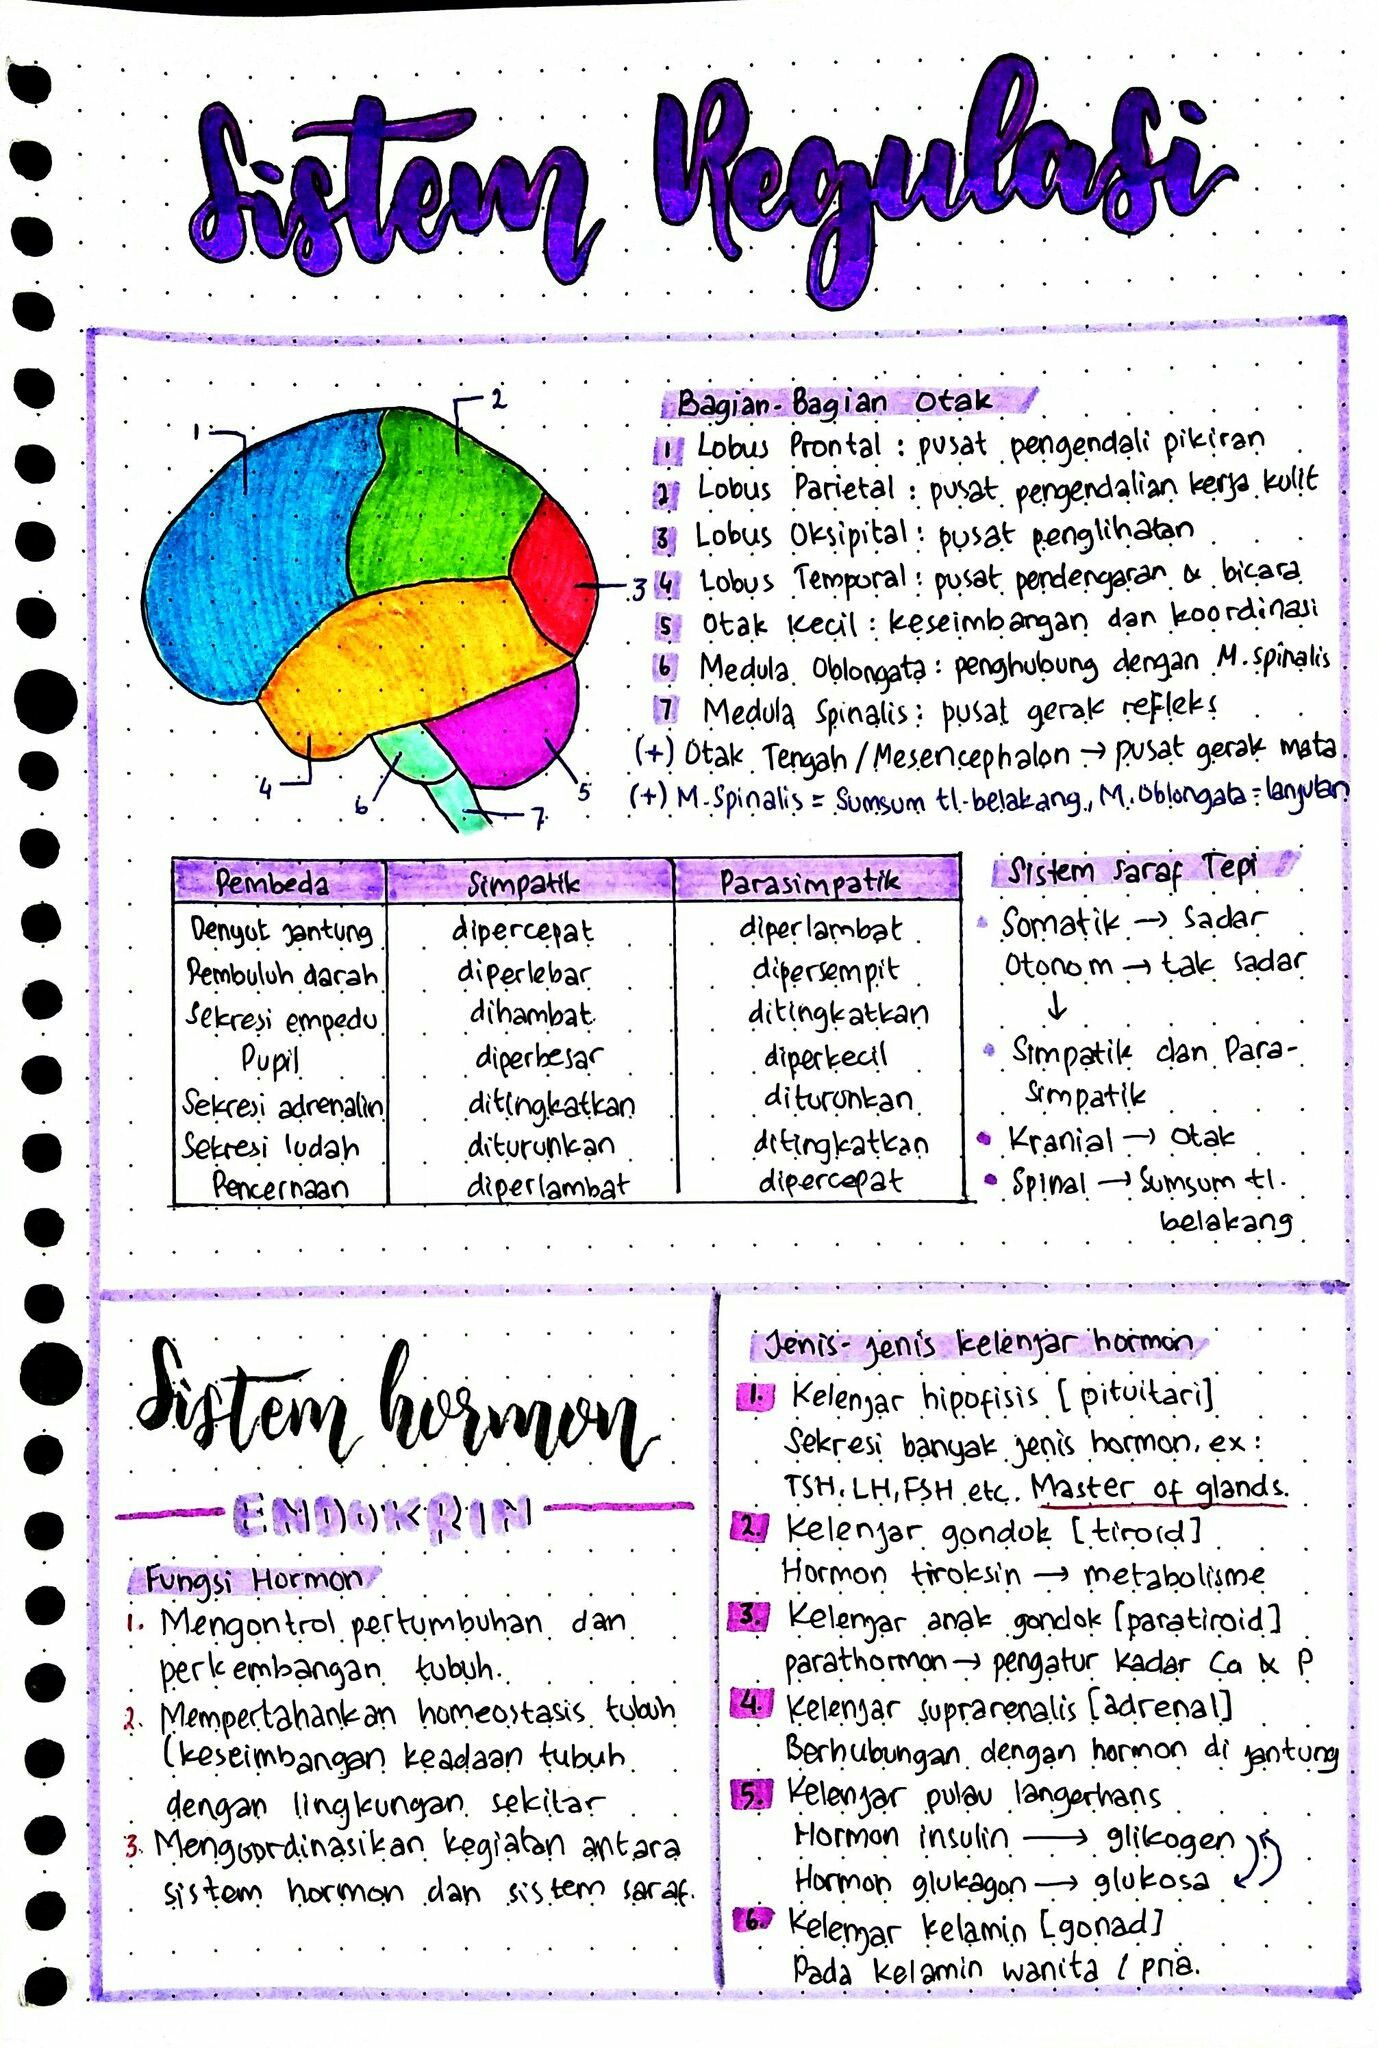 Sistem Regulasi
1
2
3
4
6
5
7
Bagian-Bagian Otak
1 Lobus Prontal : pusat pengendali pikiran
2 Lobus Parietal : pusat pengendalian kerja kulit
3 Lobus Oksipital : pusat penglihatan
4 Lobus Temporal : pusat pendengaran & bicara
5 Otak Kecil : keseimbangan dan koordinasi
6 Medula Oblongata : penghubung dengan M. Spinalis
7 Medula Spinalis : pusat gerak refleks
(+) Otak Tengah / Mesencephalon → pusat gerak mata
(+) M. Spinalis = Sumsum tl. belakang, M. Oblongata = lanjutan
Pembeda Simpatik Parasimpatik
Denyut jantung dipercepat diperlambat
Pembuluh darah diperlebar dipersempit
Sekresi empedu dihambat ditingkatkan
Pupil diperbesar diperkecil
Sekresi adrenalin ditingkatkan diturunkan
Sekresi ludah diturunkan ditingkatkan
Pencernaan diperlambat dipercepat
Sistem Saraf Tepi
• Somatik → Sadar
Otonom → tak sadar
↓
• Simpatik dan Para-
simpatik
• Kranial → Otak
• Spinal → Sumsum tl.
belakang
Sistem hormon
ENDOKRIN
Fungsi Hormon
1. Mengontrol pertumbuhan dan
perkembangan tubuh.
2. Mempertahankan homeostasis tubuh
(keseimbangan keadaan tubuh
dengan lingkungan sekitar
3. Mengoordinasikan kegiatan antara
sistem hormon dan sistem saraf.
Jenis-jenis kelenjar hormon
1. Kelenjar hipofisis [pituitari]
Sekresi banyak jenis hormon, ex :
TSH, LH, FSH etc. Master of glands.
2. Kelenjar gondok [tiroid]
Hormon tiroksin → metabolisme
3. Kelenjar anak gondok [paratiroid]
parathormon → pengatur kadar Ca & P
4. Kelenjar suprarenalis [adrenal]
Berhubungan dengan hormon di jantung
5. Kelenjar pulau langerhans
Hormon insulin → glikogen
Hormon glukagon → glukosa
6. Kelenjar kelamin [gonad]
Pada kelamin wanita / pria.